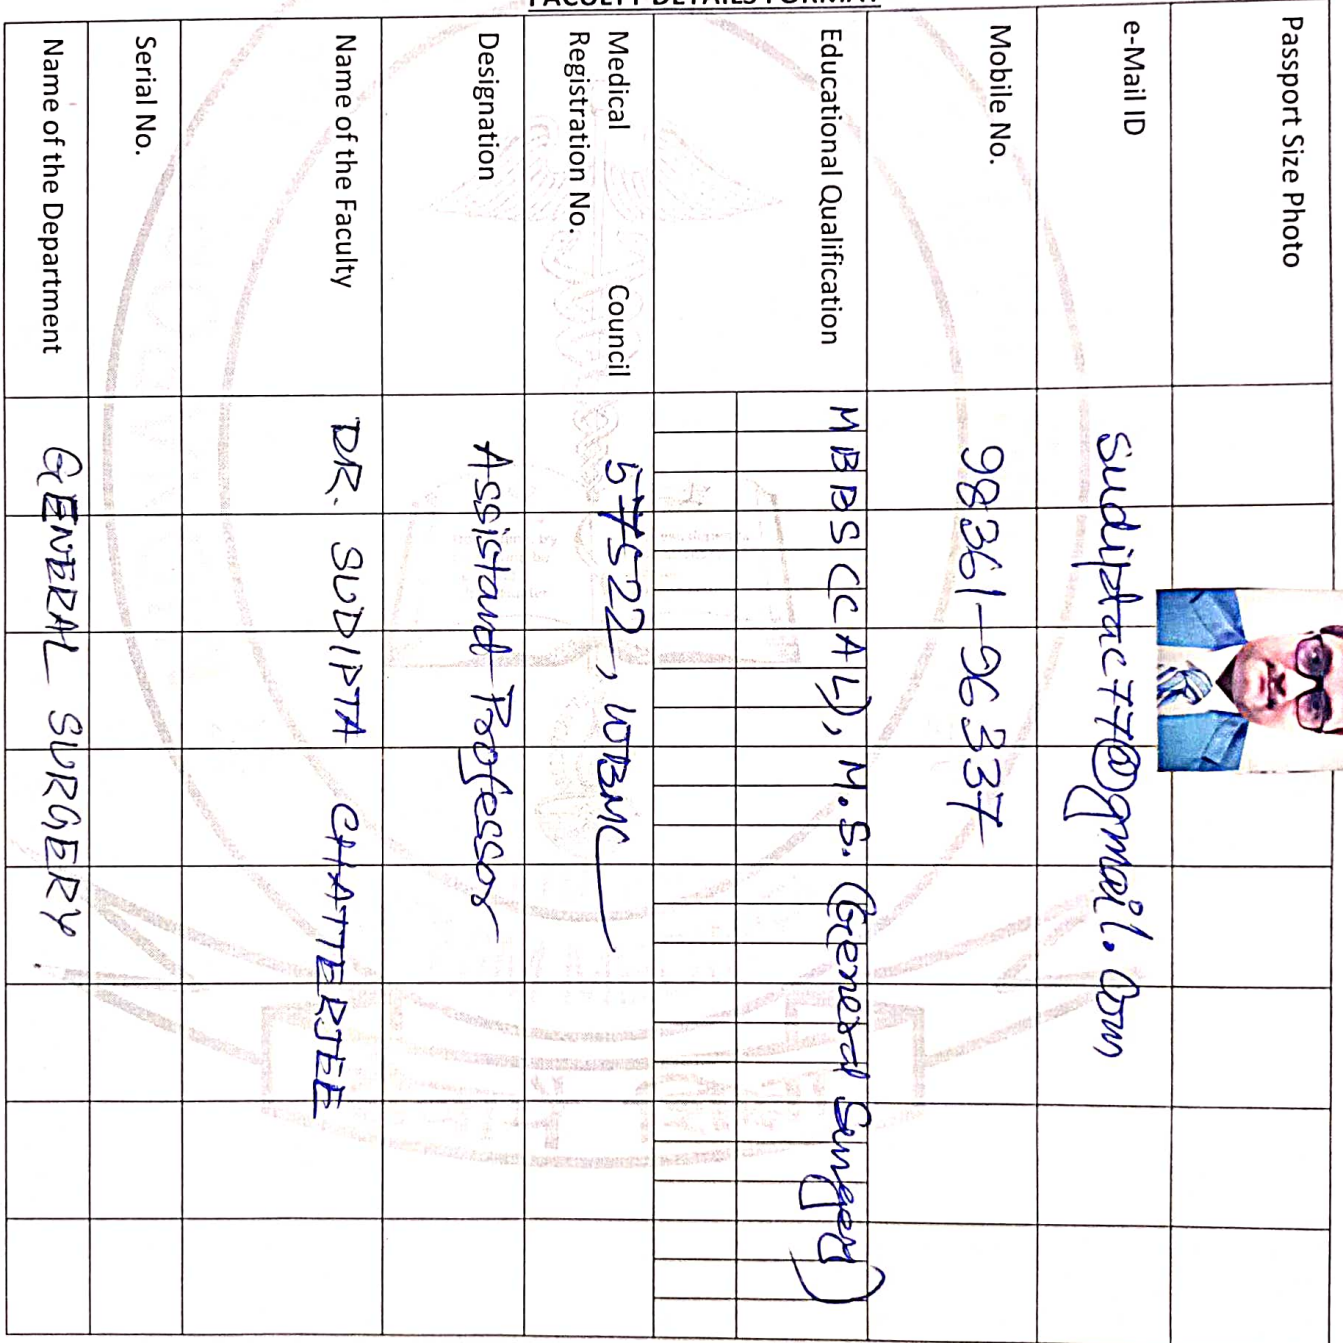 FACULTY DETAILS FORMAT
Name of the Department GENERAL SURGERY
Serial No.
Name of the Faculty DR. SUDIPTA CHATTERJEE
Designation Assistant Professor
Medical Council
Registration No. 57522, WBMC
Educational Qualification MBBS (CAL), M.S. (General Surgery)
Mobile No. 98361-96337
e-Mail ID sudiptac77@gmail.com
Passport Size Photo